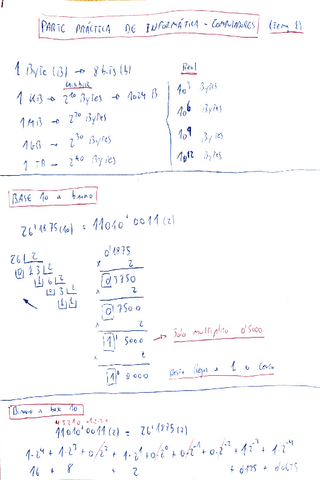 PARTE PRÁCTICA DE INFORMÁTICA - COMPUTADORES (Tema 1)
1 Byte (B) → 8 bits (b)
Real
1 KB → 2^10 Bytes → 1024 B
10^3 Bytes
1 MB → 2^20 Bytes
10^6 Bytes
1 GB → 2^30 Bytes
10^9 Bytes
1 TB → 2^40 Bytes
10^12 Bytes
BASE 10 a binario
26'1875 (10) = 11010'0011 (2)
26 | 2
0 13 | 2
1 6 | 2
0 3 | 2
1 1
0'1875
x 2
0 3750
x 2
0 7500
x 2
1 5000 → Solo multiplico 0'5000
x 2
1 0000
Binario a base 10
4 3 2 1 0 -1-2-3-4
11010'0011 (2) = 26'1875 (2)
1·2^4 + 1·2^3 + 0·2^2 + 1·2^1 + 0·2^0 + 0·2^-1 + 0·2^-2 + 1·2^-3 + 1·2^-4
16 + 8 + 2 + 0'125 + 0'0625